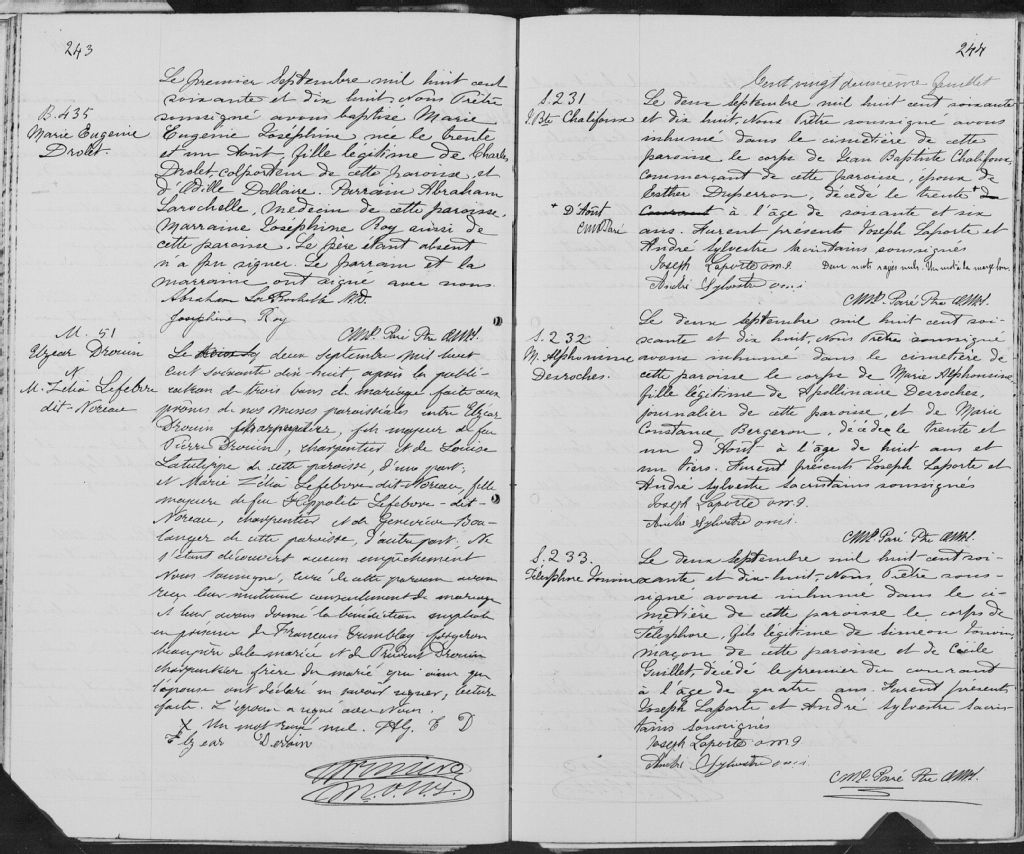 243
B. 435
Marie Eugenie
Drolet.
Le premier Septembre mil huit cent
soixante et dix huit, Nous Prêtre
soussigné avons baptisé Marie
Eugenie Josephine née le trente
et un Août, fille légitime de Charles
Drolet colporteur de cette paroisse et
d'Odille Dallaire. Parrain Abraham
Larochelle, Medecin de cette paroisse.
Marraine Josephine Roy aussi de
cette paroisse. Le père étant absent
n'a pu signer. Le parrain et la
marraine ont signé avec nous.
Abraham LaRochelle MD
Josephine Roy
CMP. Paré Ptre OMI.
M. 51
Elzear Drouin
&
M. Zélia Lefebvre
dit-Noreau
Le deux Septembre mil huit
cent soixante dix-huit après la publi-
cation de trois bans de mariage faite aux
prônes de nos messes paroissiales entre Elzear
Drouin charpentier, fils majeur de feu
Pierre Drouin, charpentier et de Louise
Latulippe de cette paroisse, d'une part;
et Marie Zélia Lefebvre dit-Noreau, fille
majeure de feu Hippolite Lefebvre-dit-
Noreau, charpentier et de Geneviève Bou-
langer de cette paroisse, d'autre part; Ne
s'étant découvert aucun empêchement
Nous Soussigné, curé de cette paroisse avons
reçu leur mutuel consentement de mariage
et leur avons donné la bénédiction nuptiale
en présence de François Tremblay
beaupère de la mariée et de Drouin
charpentier frère du marié qui ainsi que
l'épouse ont déclaré ne savoir signer, lecture
faite. L'époux a signé avec Nous.
X Un mot rayé nul. E D
Elzear Deroin
O.M.I.
244
Cent vingt deuxième feuillet
S. 231
J. Bte Chalifoux
+ D'Août
CMP Paré
Le deux Septembre mil huit cent soixante
et dix huit, Nous Prêtre soussigné avons
inhumé dans le cimetière de cette
paroisse le corps de Jean Baptiste Chalifoux,
commerçant de cette paroisse, époux de
Esther Duperron, décédé le trente + du
Courant à l'âge de soixante et six
ans. Furent présents Joseph Laporte et
André Sylvestre sacristains soussignés
Joseph Laporte o m i. Deux mots rayés nuls. Un mot à la marge bon.
André Sylvestre o m i
CMP. Paré Ptre OMI.
S. 232
M. Alphonsine
Desroches.
Le deux Septembre mil huit cent soi-
xante et dix huit, Nous Prêtre soussigné
avons inhumé dans le cimetière de
cette paroisse le corps de Marie Alphonsine,
fille légitime de Apollinaire Desroches,
journalier de cette paroisse, et de Marie
Constance Bergeron, décédée le trente et
un d'Août à l'âge de huit ans et
un tiers. Furent présents Joseph Laporte et
André Sylvestre sacristains soussignés
Joseph Laporte o m i.
André Sylvestre o m i.
CMP. Paré Ptre OMI.
S. 233.
Télesphore Fonvin
Le deux Septembre mil huit-cent-soi-
xante et dix-huit-Nous Prêtre sous-
signé avons inhumé dans le ci-
metière de cette paroisse le corps de
Télesphore, fils légitime de Simeon Fonvin,
maçon de cette paroisse et de Cécile
Guillet, décédé le premier du courant
à l'âge de quatre ans. Furent présents
Joseph Laporte et André Sylvestre sacris-
tains soussignés
Joseph Laporte o m i
André Sylvestre o m i
CMP. Paré Ptre OMI.